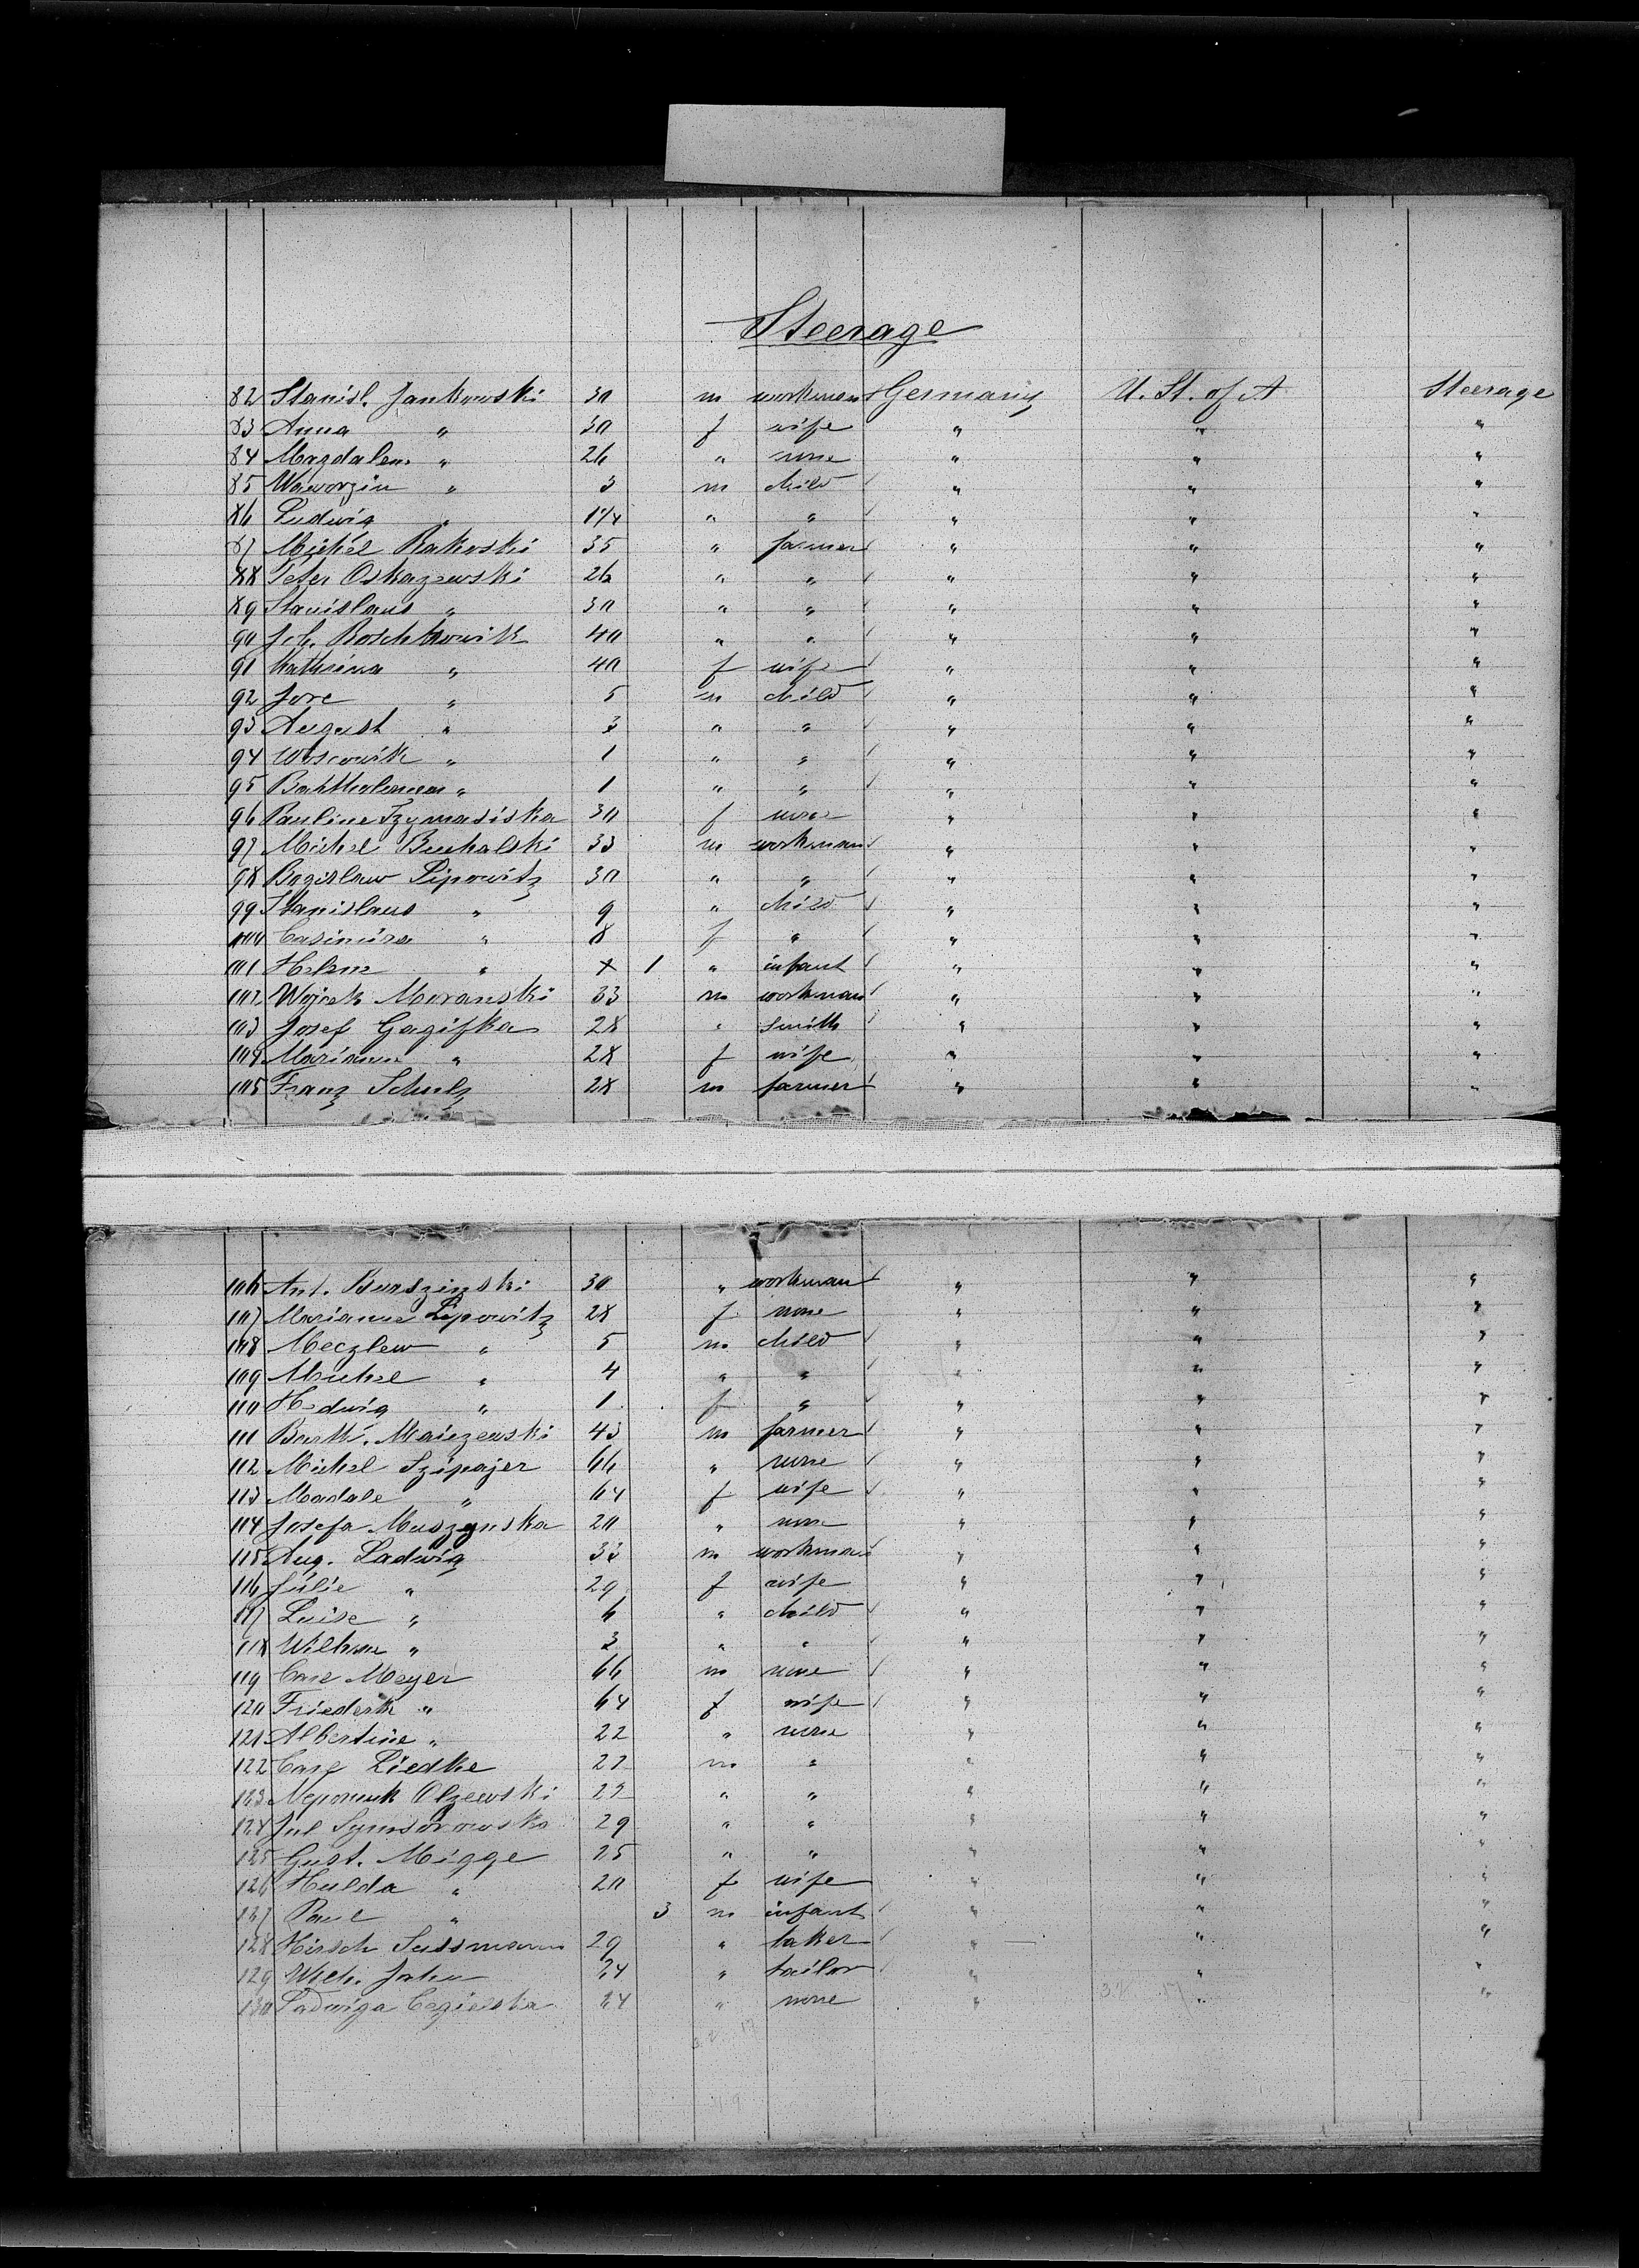 Steerage
82 Stanisl. Jankowski 30 m workman Germany U. St. of A Steerage
83 Anna " 30 f wife " " "
84 Magdalena " 26 " none " " "
85 Waworzin " 3 m child " " "
86 Ludwig " 1 1/4 " " " " "
87 Michel Rakoski 35 " farmer " " "
88 Peter Oskazewski 26 " " " " "
89 Stanislaus " 30 " " " " "
90 Joh. Roschkowik 40 " " " " "
91 Kathrina " 40 f wife " " "
92 " 5 m child " " "
93 August " 3 " " " " "
94 " 1 " " " " "
95 " 1 " " " " "
96 Pauline Szymasiska 30 f none " " "
97 Michel Buchalski 33 m workman " " "
98 Bogislaw Lipowitz 30 " " " " "
99 Stanislaus " 9 " child " " "
100 Casimira " 8 f " " " "
101 " 1 " infant " " "
102 Wojcek Moranski 33 m workman " " "
103 Josef Gagifka 28 " smith " " "
104 Marianne " 28 f wife " " "
105 Franz Schulz 28 m farmer " " "
106 Ant. Burszinski 30 " workman " " "
107 Marianne Lipowitz 28 f none " " "
108 Meczlew " 5 m child " " "
109 Michel " 4 " " " " "
110 Hedwig " 1 f " " " "
111 Barth. Maiezewski 43 m farmer " " "
112 Michel Szipajer 66 " none " " "
113 Madale " 64 f wife " " "
114 Josefa Muszynska 20 " none " " "
115 Aug. Ladwig 33 m workman " " "
116 Julie " 29 f wife " " "
117 Luise " 6 " child " " "
118 " 3 " " " " "
119 Carl Meyer 66 m none " " "
120 Friederik " 64 f wife " " "
121 Albertine " 22 " none " " "
122 Carl Liedke 27 m " " " "
123 Nepomuk Olzewski 22 " " " " "
124 Jul 29 " " " " "
125 Gust. Migge 25 " " " " "
126 Hulda " 20 f wife " " "
127 Paul " 3 m infant " " "
128 Hirsch Sussmann 29 " baker " " "
129 Wilh. Jahn 24 " tailor " " "
130 Ladwiga Cegielska 24 " none " " "
32 17
32 17